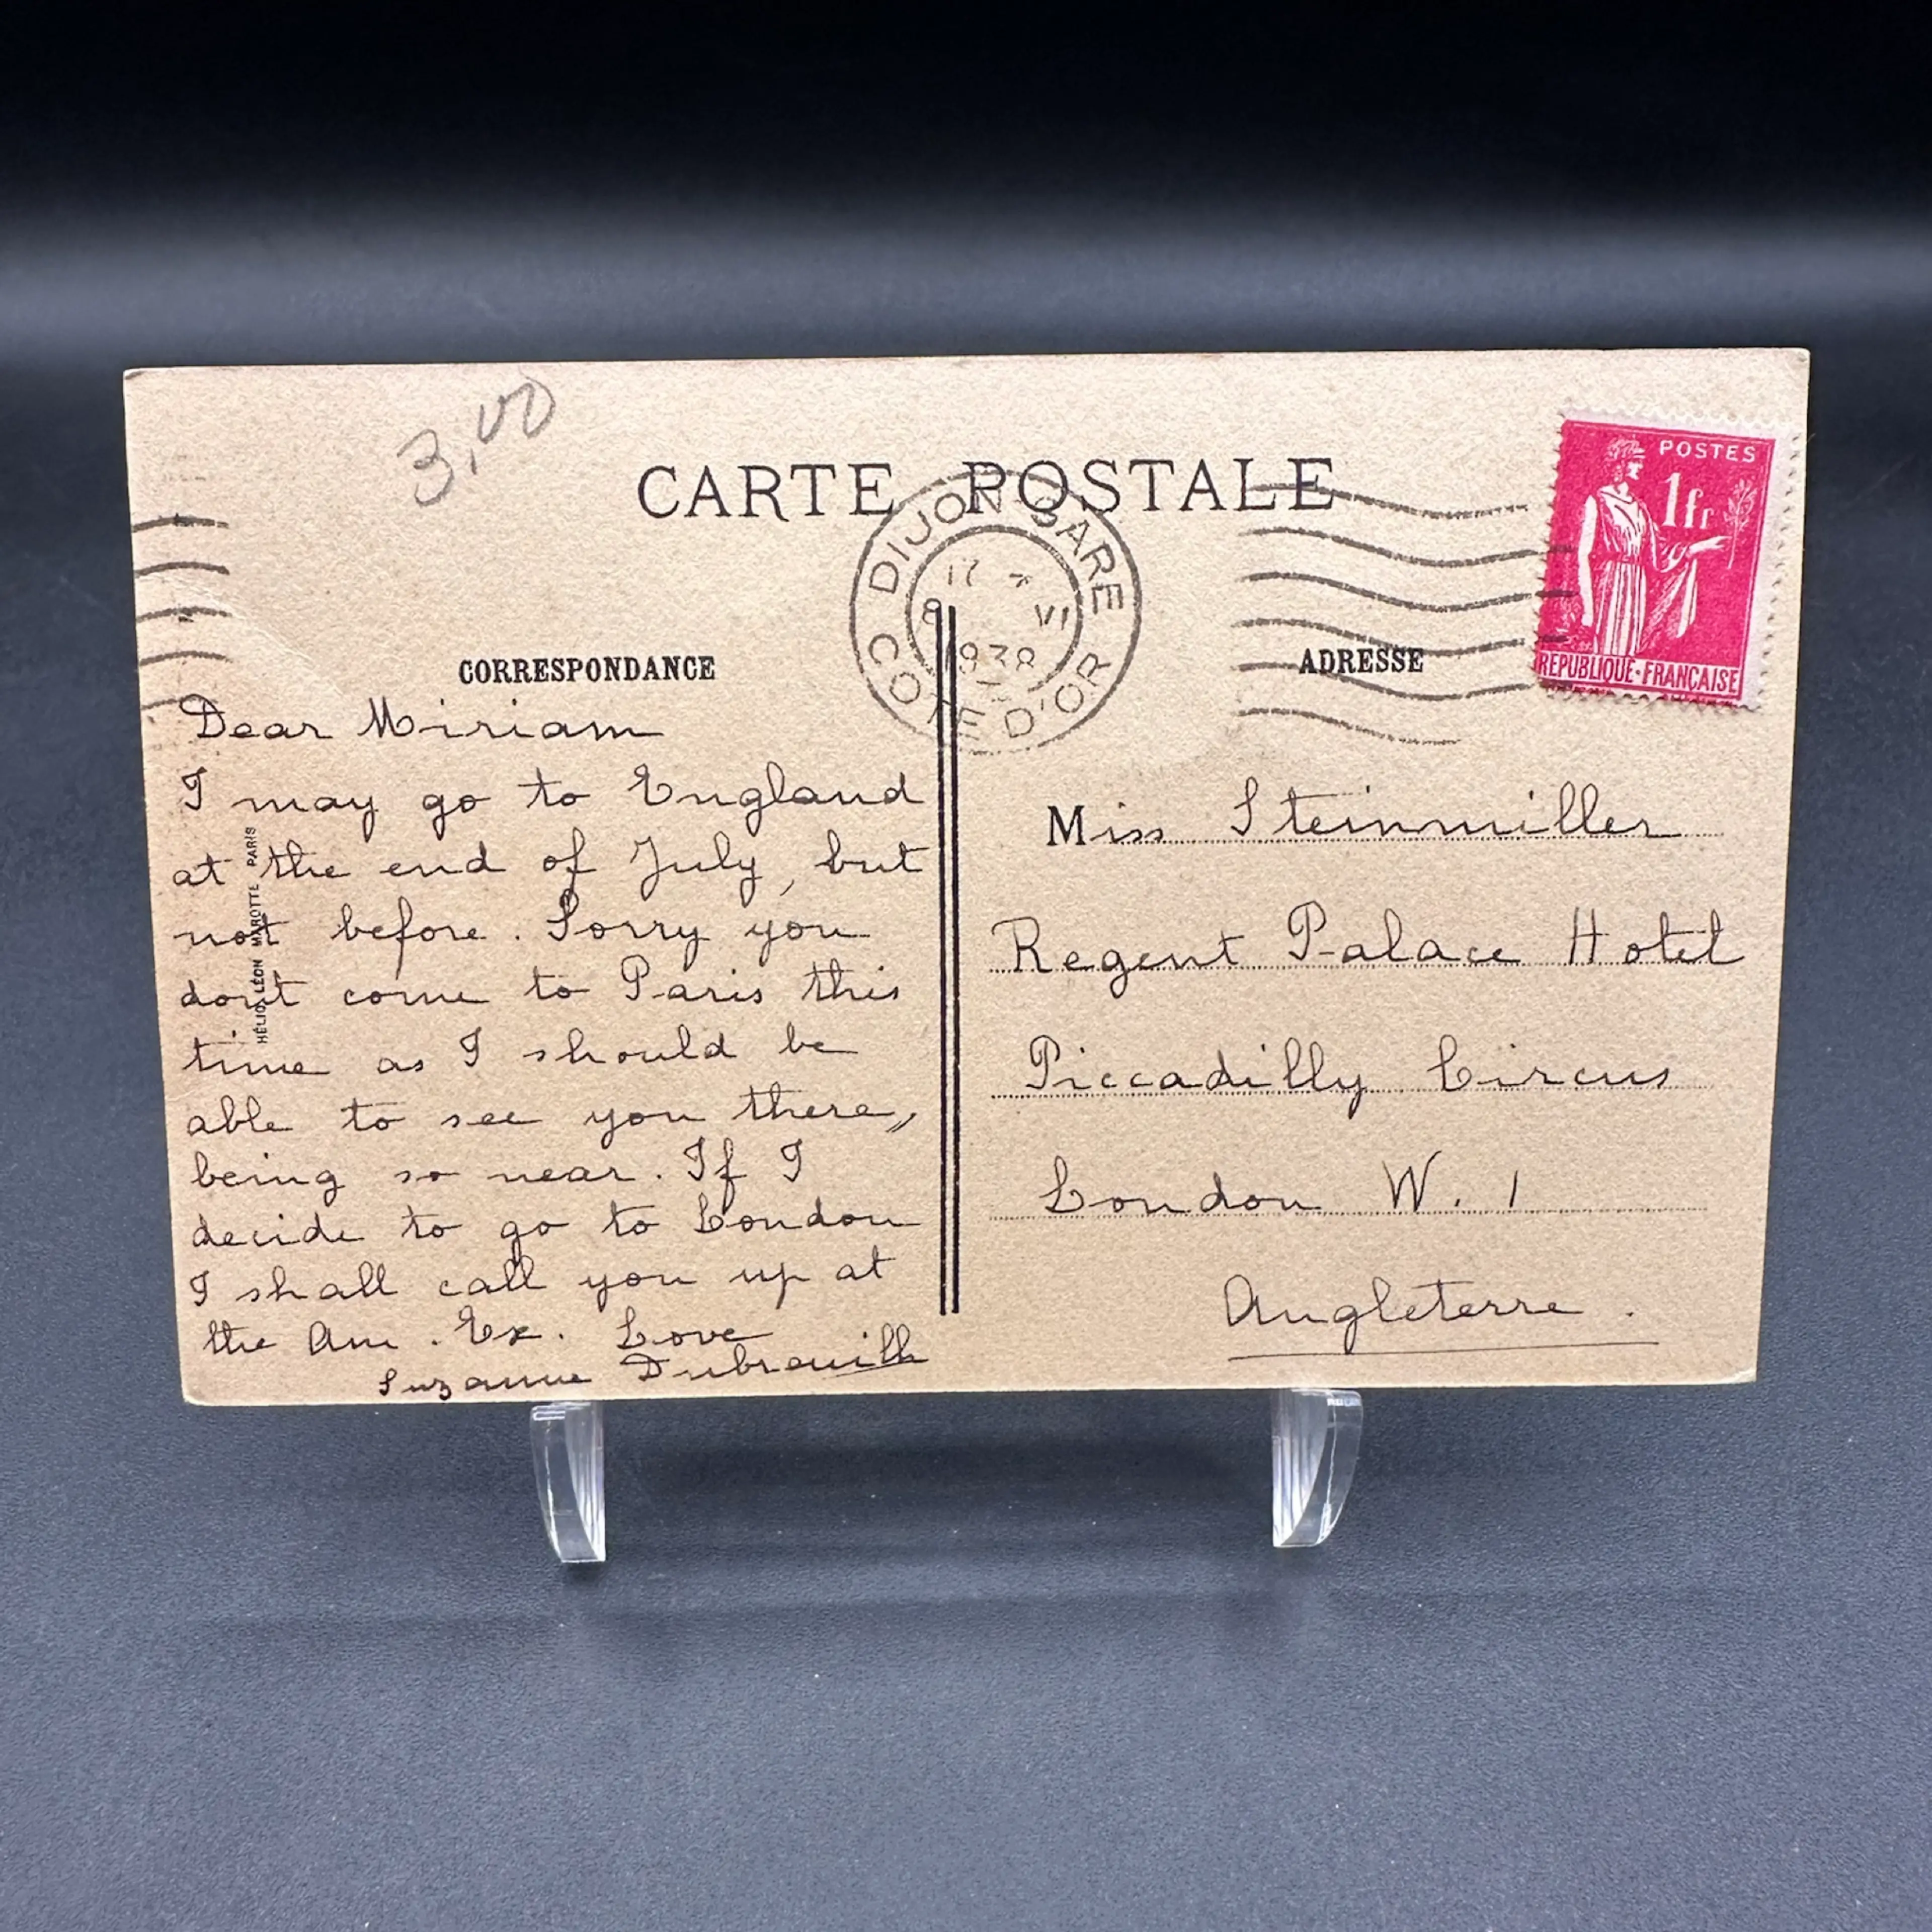 3,00
CARTE POSTALE
DIJON GARE
17
8 VI
1938
COTE D'OR
POSTES
1fr
REPUBLIQUE·FRANÇAISE
CORRESPONDANCE
ADRESSE
Dear Miriam
I may go to England
at the end of July, but
not before. Sorry you
don't come to Paris this
time as I should be
able to see you there,
being so near. If I
decide to go to London
I shall call you up at
the Am. Ex. Love
Suzanne
HÉLIO LÉON MAROTTE PARIS
Miss Steinmiller
Regent Palace Hotel
Piccadilly Circus
London W. 1
Angleterre.